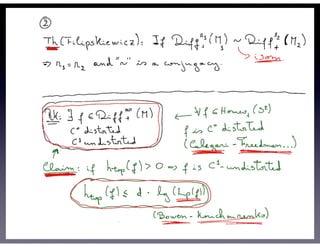 ②
Th (Filipkiewicz): If Diff₊^{r₁}(M₁) ~ Diff₊^{r₂}(M₂)
↘ isom
⇒ r₁=r₂ and "~" is a conjugacy.
∃ f ∈ Diff₊^∞(M) ← ∀ f ∈ Homeo₊(S²)
C⁰ distorted f is C⁰ distorted
C¹ undistorted (Calegari - Freedman...)
Claim: if h_top(f) > 0 ⇒ f is C¹-undistorted
h_top(f) ≤ d · log(Lip(f))
(Bowen - Kouchnirenko)